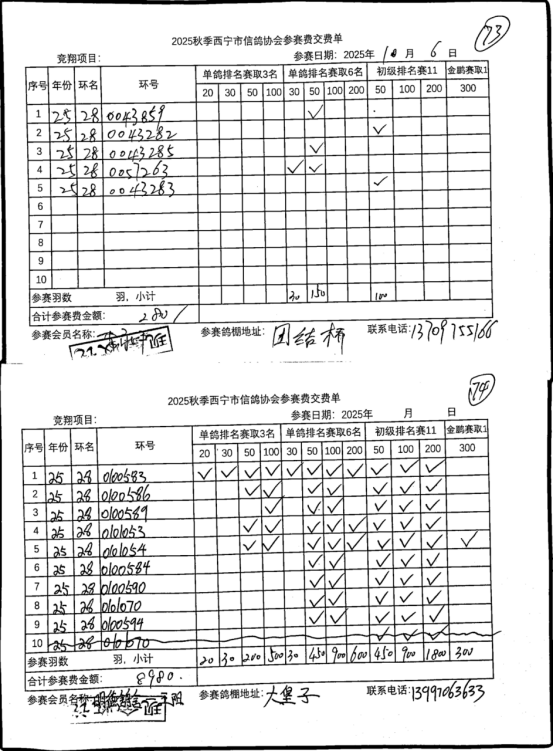 73
2025秋季西宁市信鸽协会参赛费交费单
竞翔项目： 参赛日期：2025年 10 月 6 日
序号 年份 环名 环号 单鸽排名赛取3名 单鸽排名赛取6名 初级排名赛11 金鹏赛取1
20 30 50 100 30 50 100 200 50 100 200 300
1 25 28 0043859 ✓
2 25 28 0043282 ✓
3 25 28 0043285 ✓
4 25 28 0057263 ✓ ✓
5 25 28 0043283 ✓
6
7
8
9
10
参赛羽数 羽，小计 30 150 100
合计参赛费金额： 280/
参赛会员名称： 参赛鸽棚地址： 团结桥 联系电话：13709755166
74
2025秋季西宁市信鸽协会参赛费交费单
竞翔项目： 参赛日期：2025年 月 日
序号 年份 环名 环号 单鸽排名赛取3名 单鸽排名赛取6名 初级排名赛11 金鹏赛取1
20 30 50 100 30 50 100 200 50 100 200 300
1 25 28 0100583 ✓ ✓ ✓ ✓ ✓ ✓ ✓ ✓ ✓ ✓ ✓
2 25 28 0100586 ✓ ✓ ✓ ✓ ✓ ✓ ✓
3 25 28 0100589 ✓ ✓ ✓ ✓ ✓ ✓
4 25 28 0101053 ✓ ✓ ✓ ✓ ✓ ✓ ✓ ✓
5 25 28 0101054 ✓ ✓ ✓ ✓ ✓ ✓ ✓ ✓ ✓
6 25 28 0100584 ✓ ✓ ✓ ✓ ✓
7 25 28 0100590 ✓ ✓ ✓ ✓ ✓
8 25 28 0101070 ✓ ✓ ✓ ✓ ✓
9 25 28 0100594 ✓ ✓ ✓ ✓ ✓
10 25 28 0101070 ✓ ✓ ✓
参赛羽数 羽，小计 20 30 200 500 30 450 900 600 450 900 1800 300
合计参赛费金额： 8980.
参赛会员名称： 参赛鸽棚地址： 大堡子 联系电话：13997063633